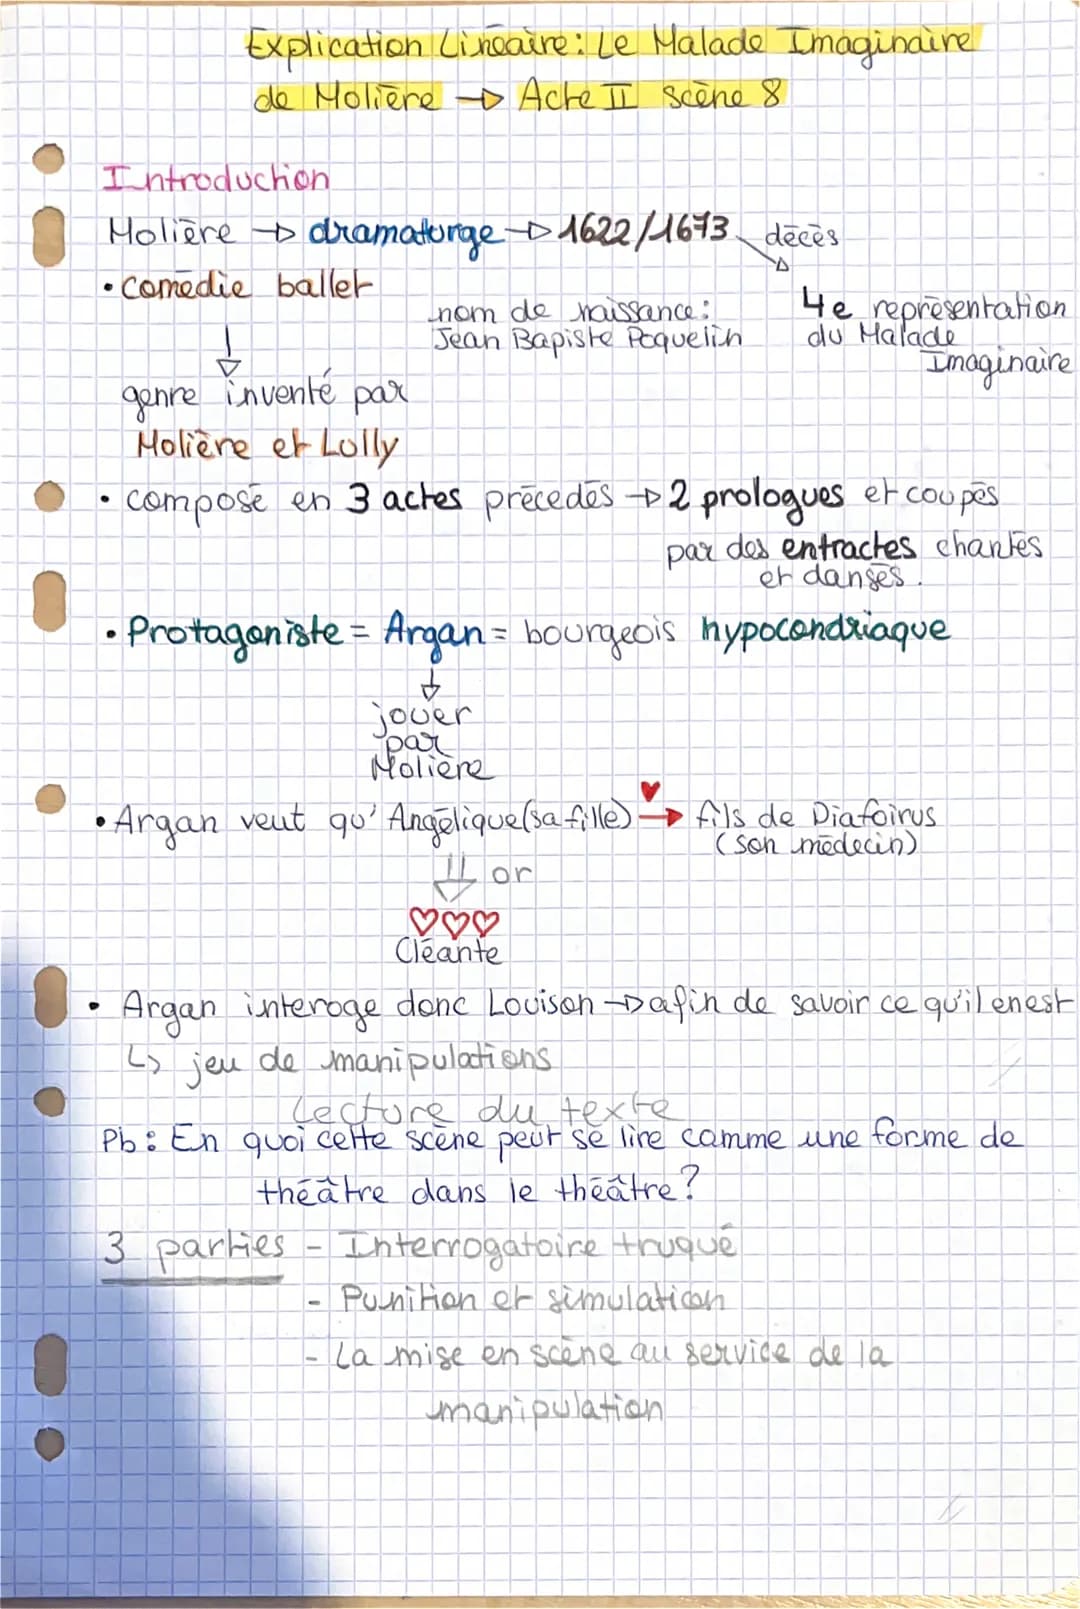 Explication Linéaire : Le Malade Imaginaire
de Molière → Acte II scène 8
Introduction
Molière → dramaturge → 1622/1673 décès
• comédie ballet
nom de naissance :
Jean Bapiste Poquelin
4e représentation
du Malade
Imaginaire
↓
genre inventé par
Molière et Lully
• composé en 3 actes précédés → 2 prologues et coupés
par des entractes chantés
et dansés.
• Protagoniste = Argan = bourgeois hypocondriaque
↓
jouer
par
Molière
• Argan veut qu'Angélique (sa fille) → fils de Diafoirus
(son médecin)
⇓ or
♡♡♡
Cléante
• Argan interoge donc Louison → afin de savoir ce qu'il en est
↳ jeu de manipulations
Lecture du texte
Pb : En quoi cette scène peut se lire comme une forme de
théâtre dans le théâtre ?
3 parties - Interrogatoire truqué
- Punition et simulation
- La mise en scène au service de la
manipulation